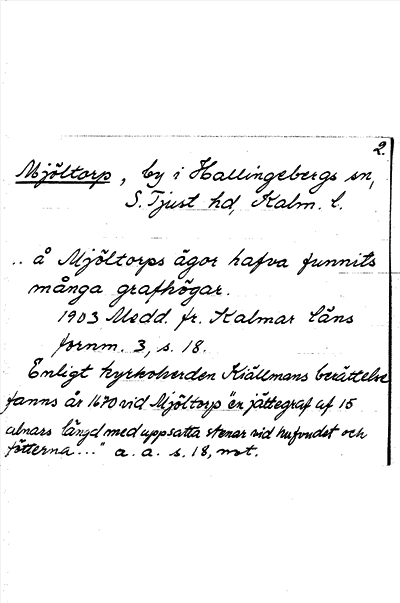 2.
Mjöltorp, by i Hallingebergs sn,
S. Tjust hd, Kalm. l.
.. å Mjöltorps ägor hafva funnits
många grafhögar.
1903 Medd. fr. Kalmar läns
fornm. 3, s. 18.
Enligt kyrkoherden Kiällmans berättelse
fanns år 1670 vid Mjöltorp "en jättegraf af 15
alnars längd med uppsatta stenar vid hufvudet och
fötterna..." a. a. s. 18, not.